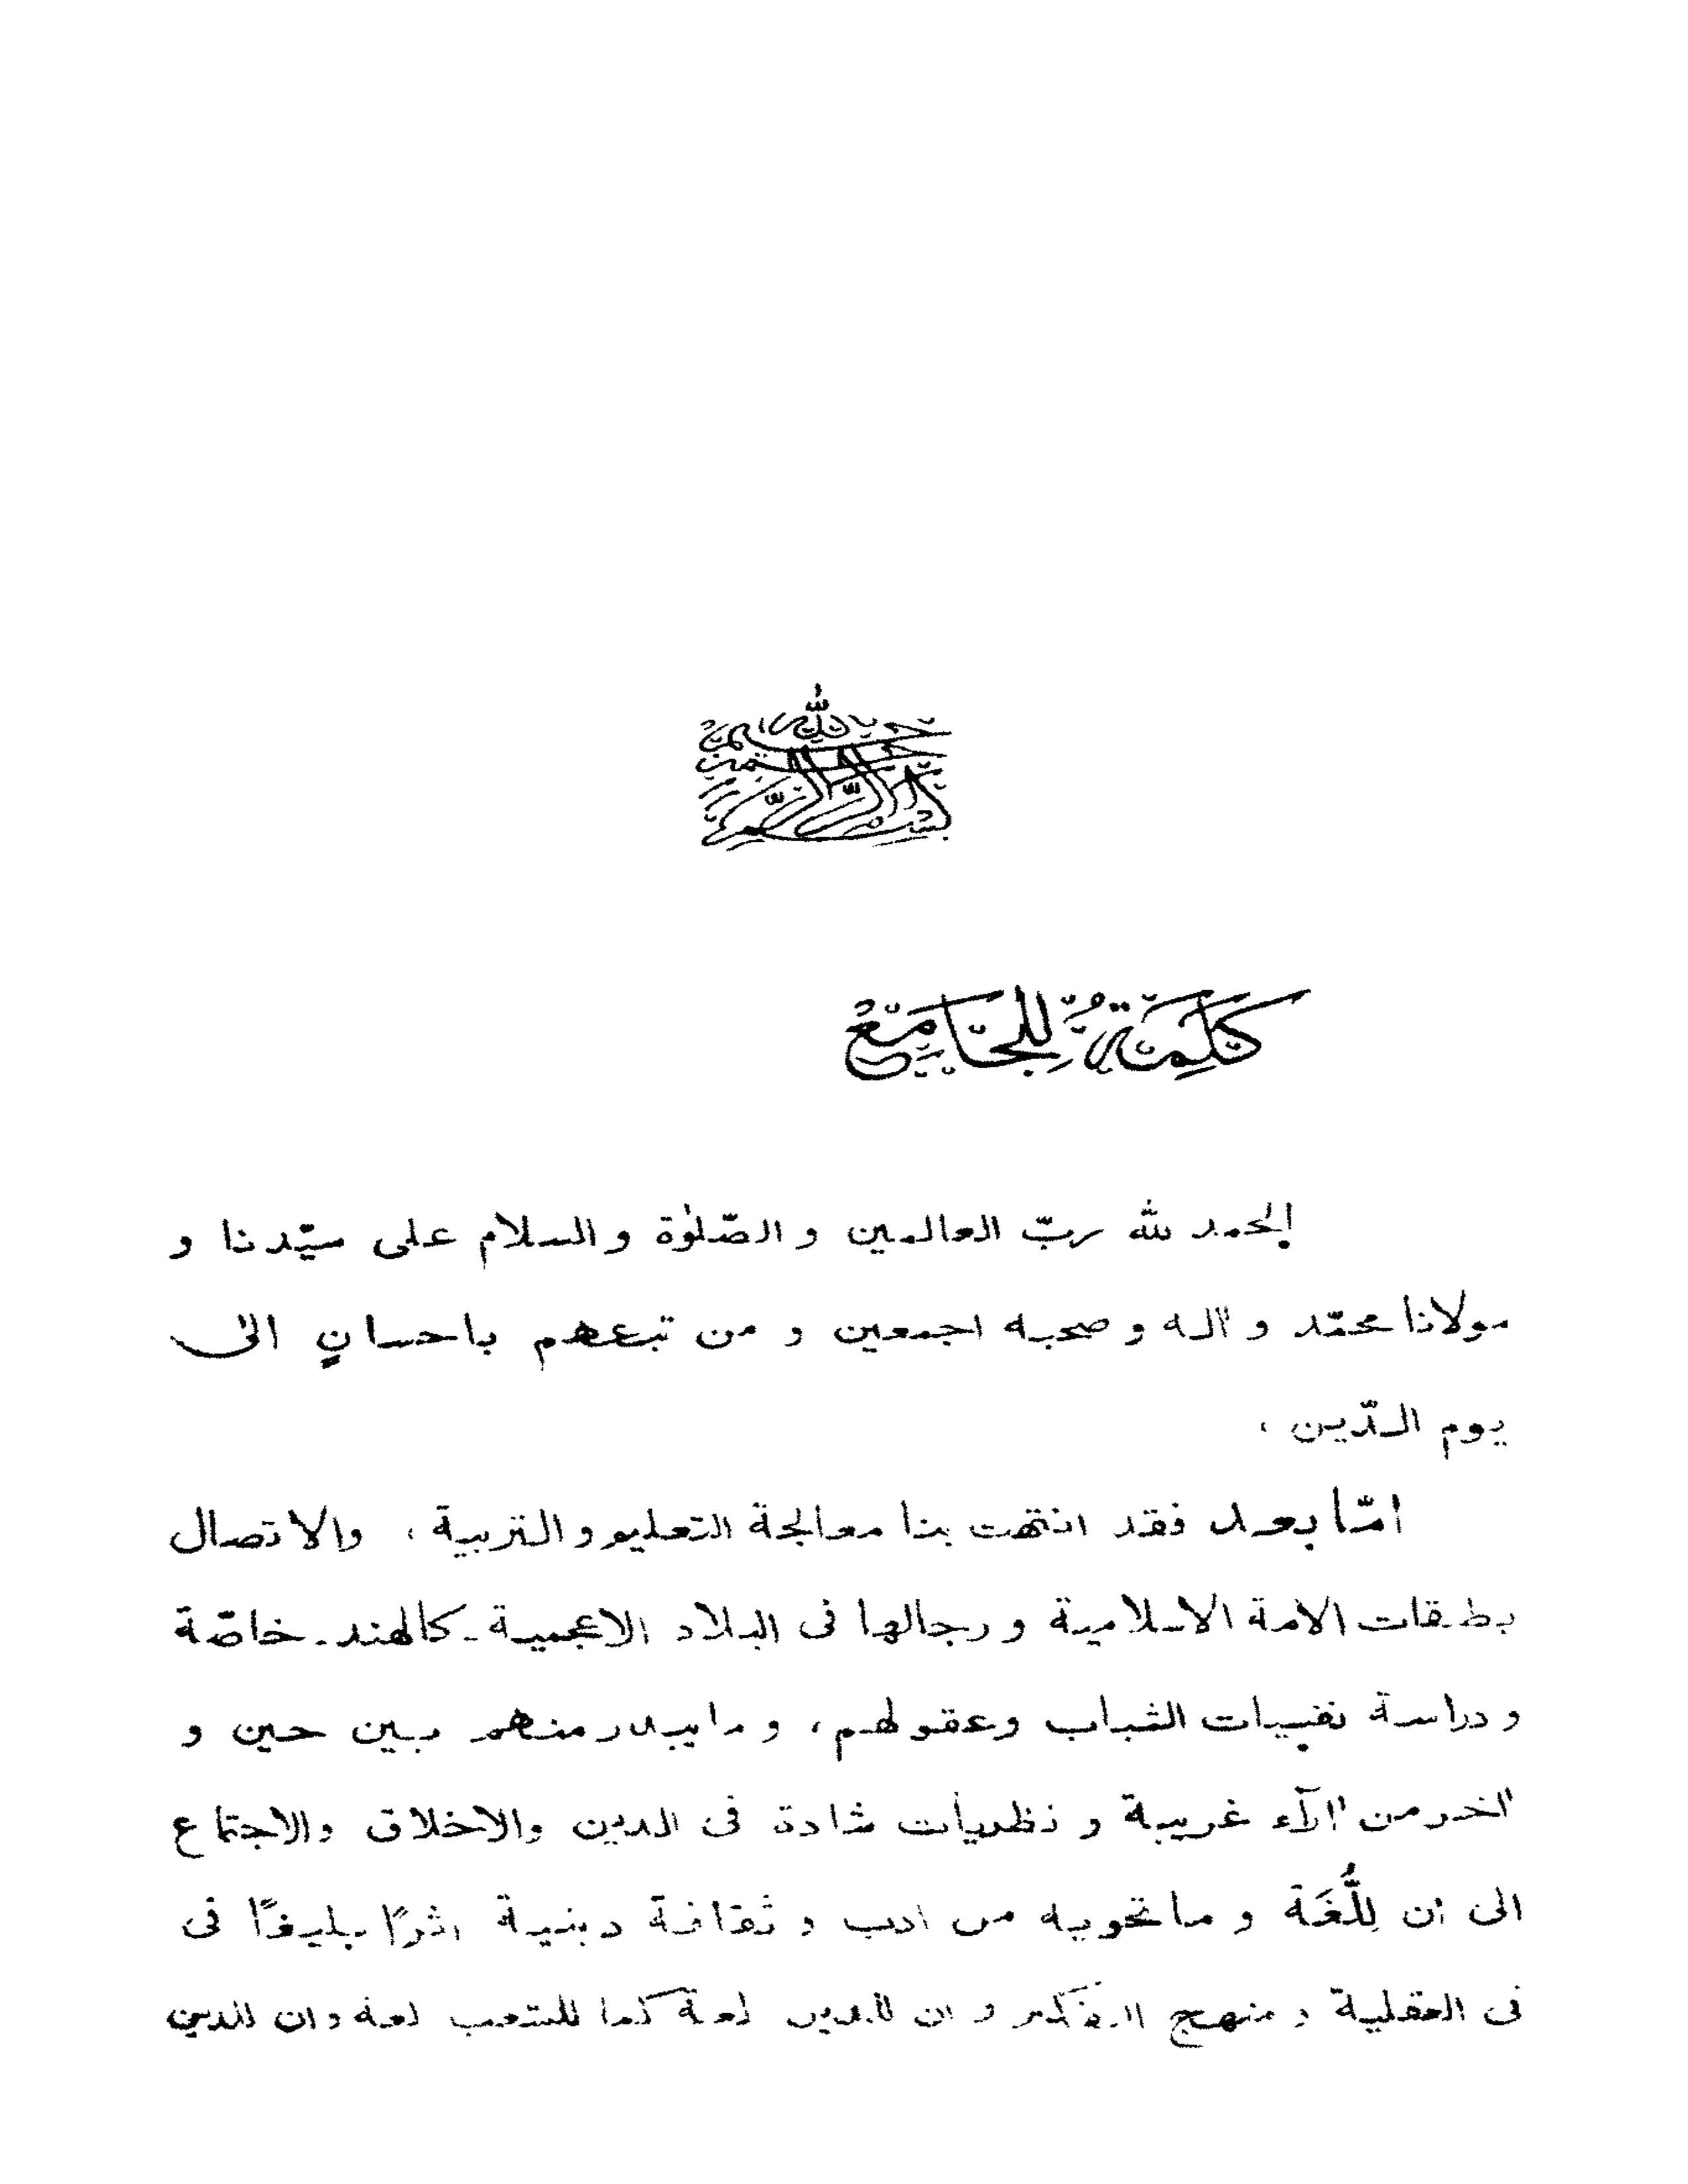 بسم الله الرحمن الرحيم
كَلِمَةٌ لِلجَامِعِ
الحمد لله ربّ العالمين و الصّلوٰة والسلام على سيّدنا و
مولانا محمّد و اٰله و صحبه اجمعين و من تبعهم باحسانٍ الى
يوم الدّين ،
امّا بعد فقد انتهت بنا معالجة التعليم و التربية ، والاتصال
بطبقات الامة الاسلامية و رجالها فى البلاد الاعجمية ـ كالهند ـ خاصّة
و دراسة نفسيات الشباب وعقولهم ، و ما يبدر منهم بين حين و
اٰخر من اٰرآء غريبة و نظريات شاذة فى الدين والاخلاق والاجتماع
الى ان لِلُّغَة و ما تحويه من ادب و ثقافة دينية اثرًا بليغًا فى
فى العقلية و منهج الفكر و ان للدين لغة كما للشعب لغة و ان الدين